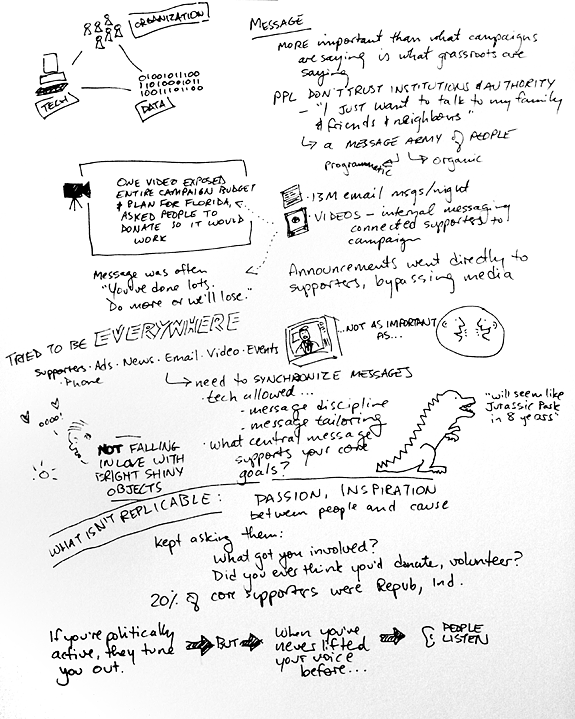 ORGANIZATION
TECH
01001011100
11010001011
10011101100
DATA
MESSAGE
MORE important than what campaigns
are saying is what grassroots are
saying
PPL DON'T TRUST INSTITUTIONS & AUTHORITY
- "I JUST want to talk to my family
& friends & neighbours"
↳ a MESSAGE ARMY of PEOPLE
Programmatic ↲ ↳ organic
ONE VIDEO EXPOSED
ENTIRE CAMPAIGN BUDGET
& PLAN FOR FLORIDA,
ASKED PEOPLE TO
DONATE SO IT WOULD
WORK
· 13M email msgs/night
· VIDEOS - internal messaging
connected supporters to
campaign
Message was often
"You've done lots.
Do more or we'll lose."
Announcements went directly to
supporters, bypassing media
TRIED TO BE EVERYWHERE
Supporters · Ads · News · Email · Video · Events
· Phone
...NOT AS IMPORTANT
AS...
↳ need to SYNCHRONIZE MESSAGES
· tech allowed...
- message discipline
- message tailoring
· what central message
supports your core
goals?
"will seem like
Jurassic Park
in 8 years"
oooo!
NOT FALLING
IN LOVE WITH
BRIGHT SHINY
OBJECTS
WHAT ISN'T REPLICABLE:
PASSION, INSPIRATION
between people and cause
kept asking them:
What got you involved?
Did you ever think you'd donate, volunteer?
20% of core supporters were Repub, Ind.
If you're politically
active, they tune
you out.
BUT
When you've
never lifted
your voice
before...
PEOPLE
LISTEN